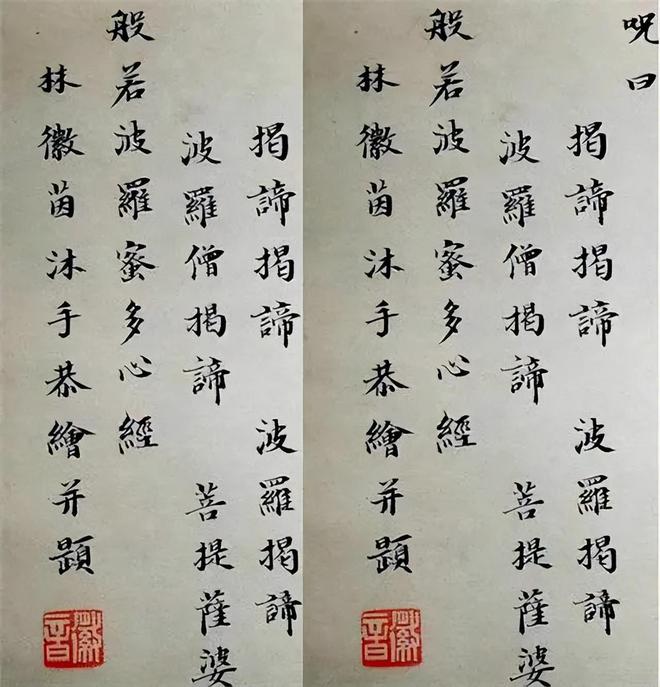 呪曰
揭諦揭諦　波羅揭諦
波羅僧揭諦　菩提薩婆
般若波羅蜜多心經
林徽茵沐手恭繪并題
徽音
揭諦揭諦　波羅揭諦
波羅僧揭諦　菩提薩婆
般若波羅蜜多心經
林徽茵沐手恭繪并題
徽音